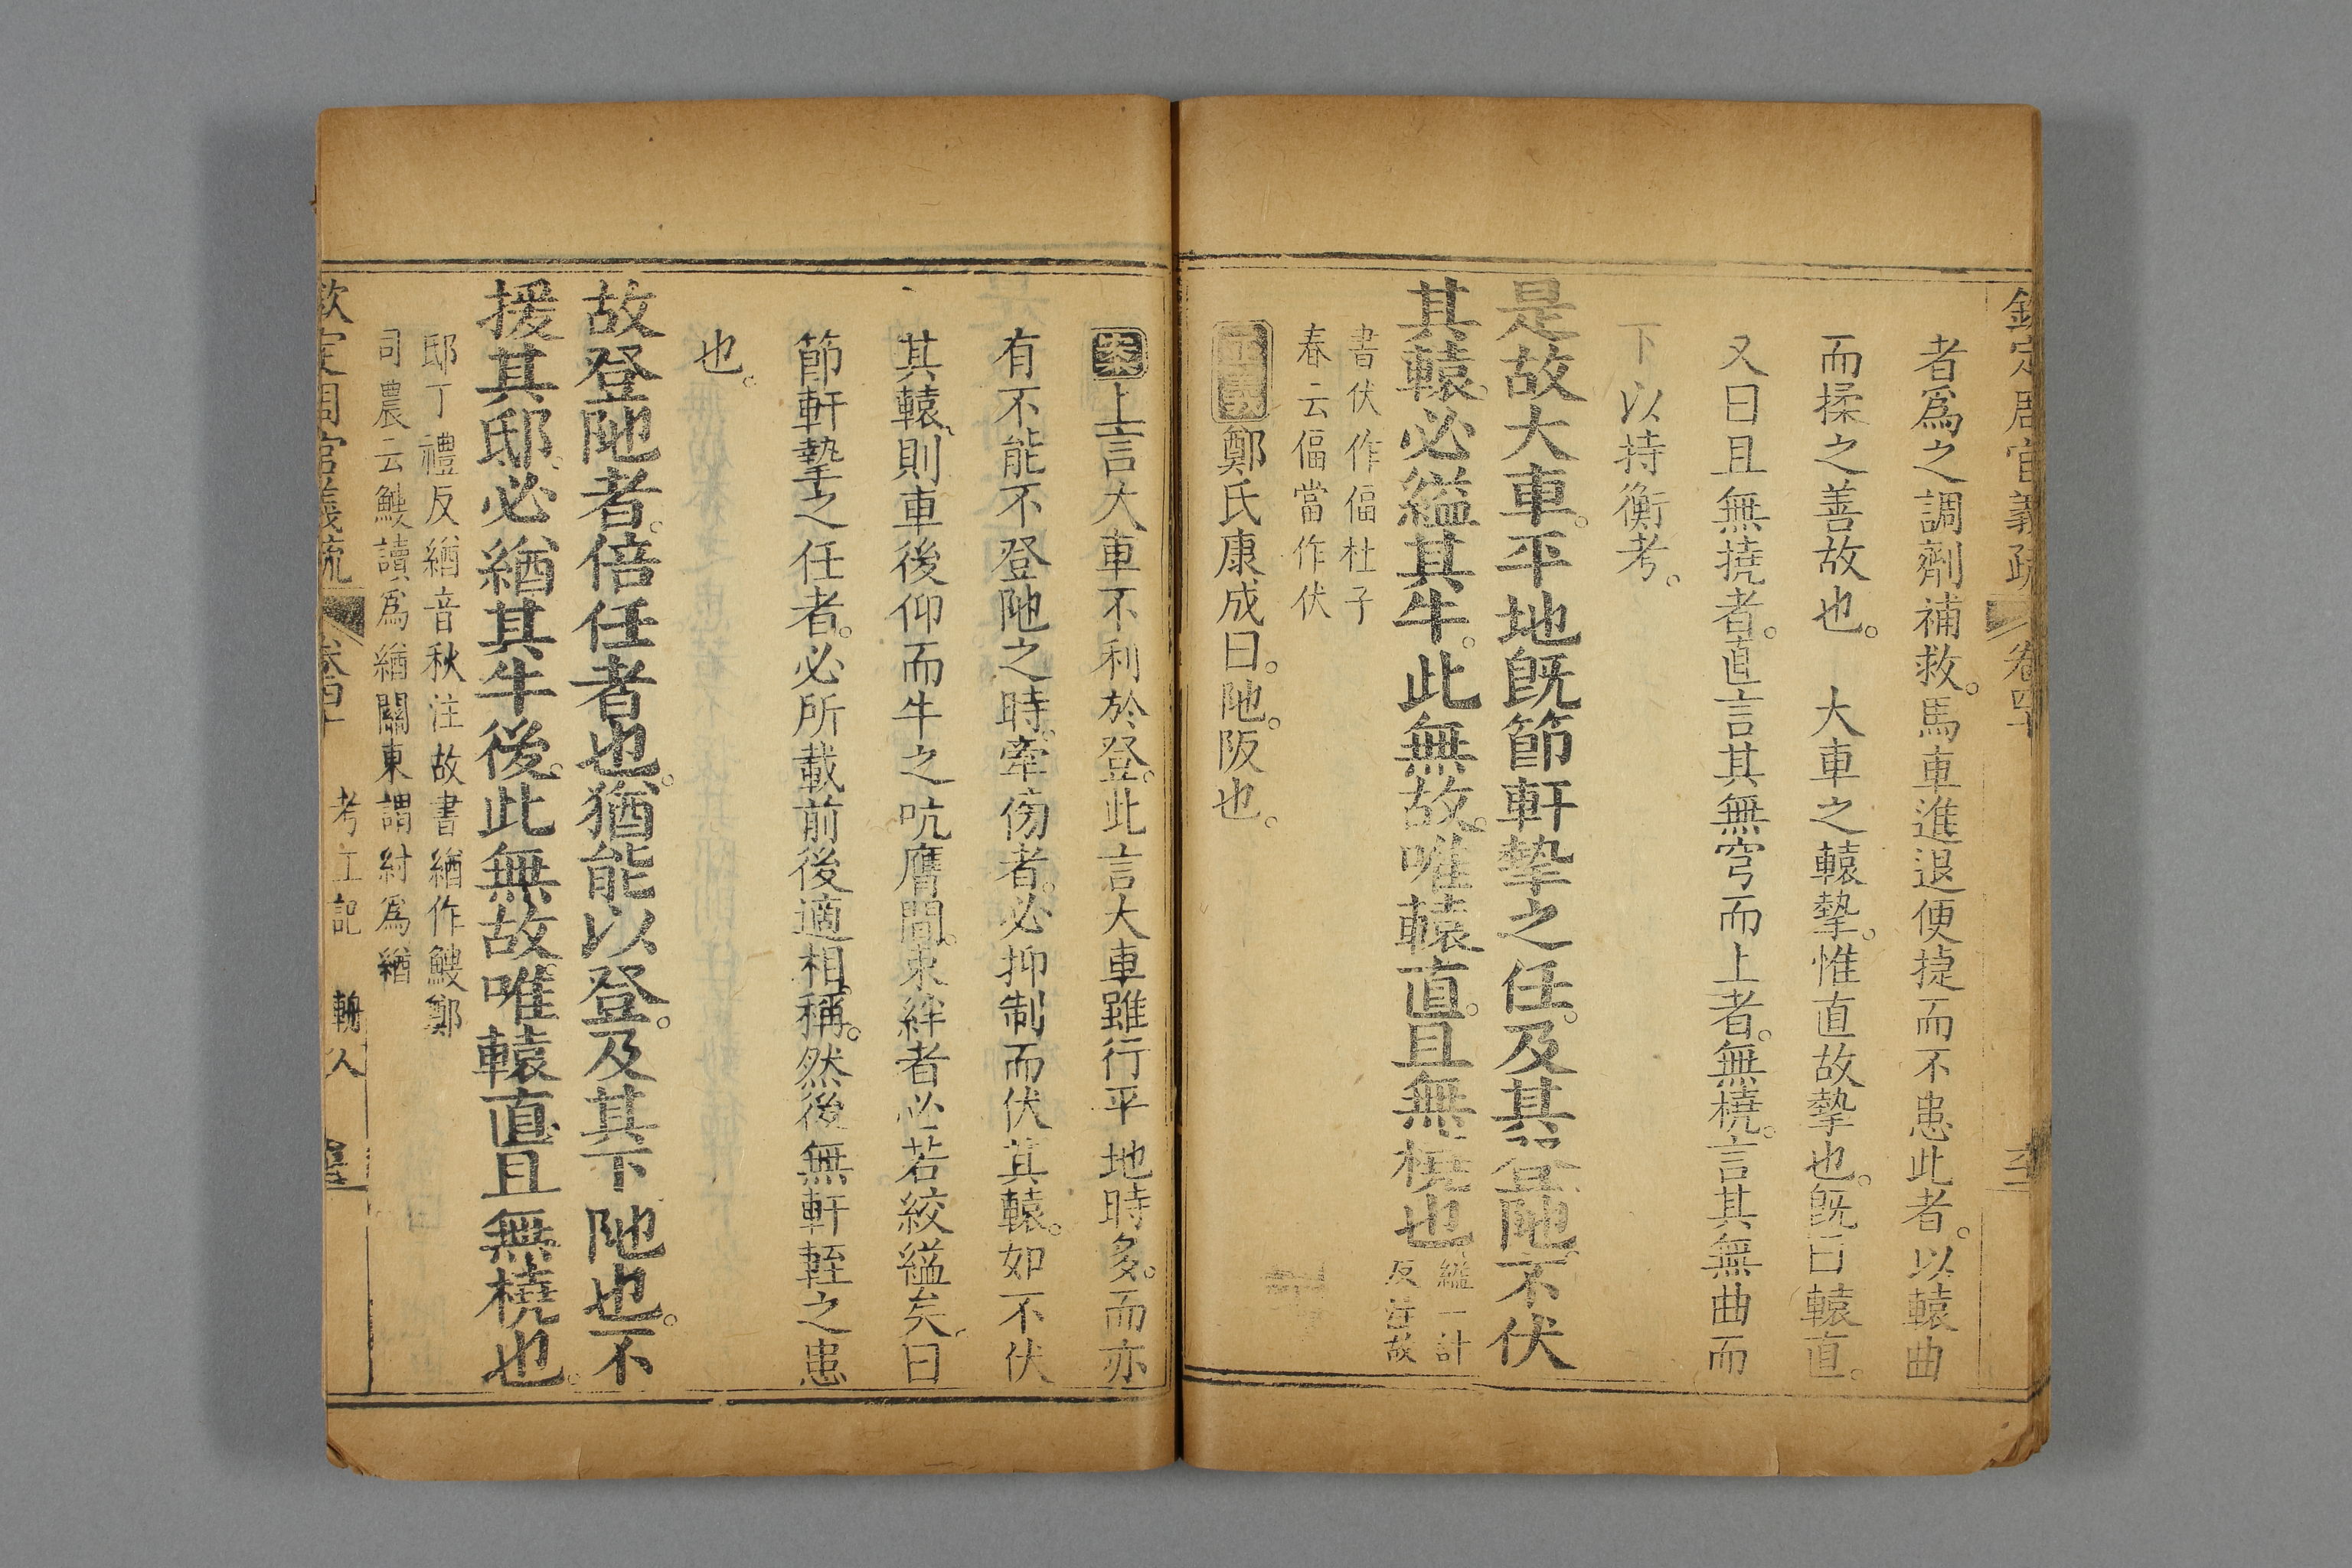 欽定周官義疏 卷四十
者爲之調劑補救。馬車進退便捷而不患此者。以轅曲
而揉之善故也。 大車之轅摯。惟直故摯也。旣曰轅直。
又曰且無撓者。直言其無穹而上者。無橈。言其無曲而
下以持衡考。
是故大車。平地旣節軒摯之任。及其登阤。不伏
其轅。必縊其牛。此無故。唯轅直。且無橈也
縊一計
反故
書伏作偪杜子
春云偪當作伏
正義鄭氏康成曰。阤。阪也。
上言大車不利於登。此言大車雖行平地時多。而亦
有不能不登阤之時。牽傍者。必抑制而伏其轅。如不伏
其轅。則車後仰而牛之吭膺間。束絆者必若絞縊矣。曰
節軒摯之任者。必所載前後適相稱。然後無軒輊之患
也。
故登阤者。倍任者也。猶能以登。及其下阤也。不
援其邸。必緧其牛後。此無故。唯轅直且無橈也。
邸丁禮反緧音秋注故書緧作鰌鄭
司農云鰌讀爲緧關東謂紂爲緧
欽定周官義疏 卷四十 考工記 輈人